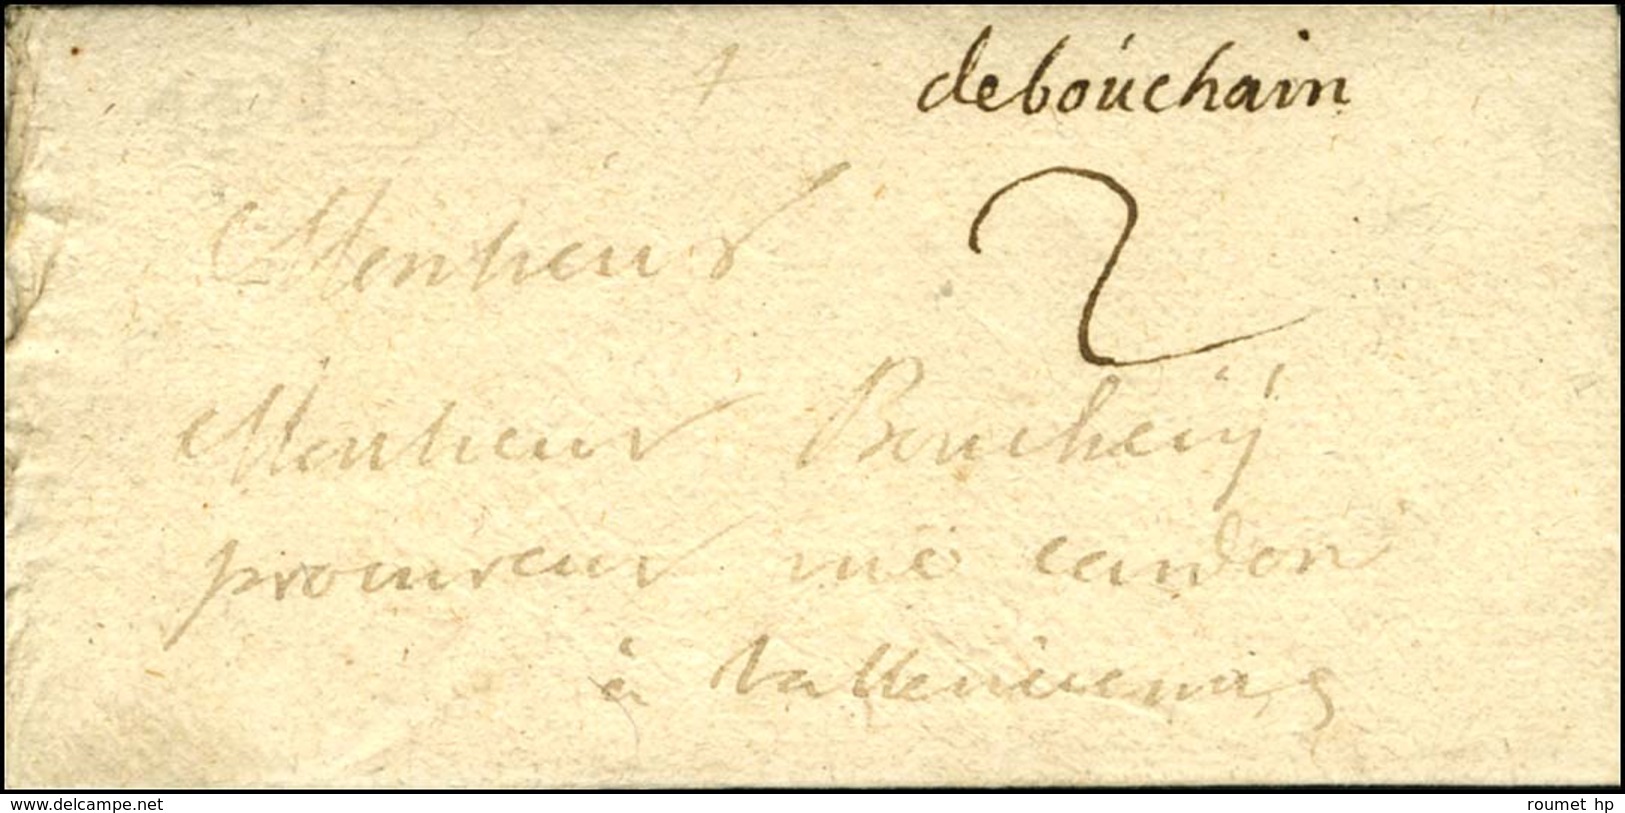 debouchain
2
Monsieur
Monsieur Boucherÿ
procureur
à Vallenciennes
www.delcampe.net
roumet hp